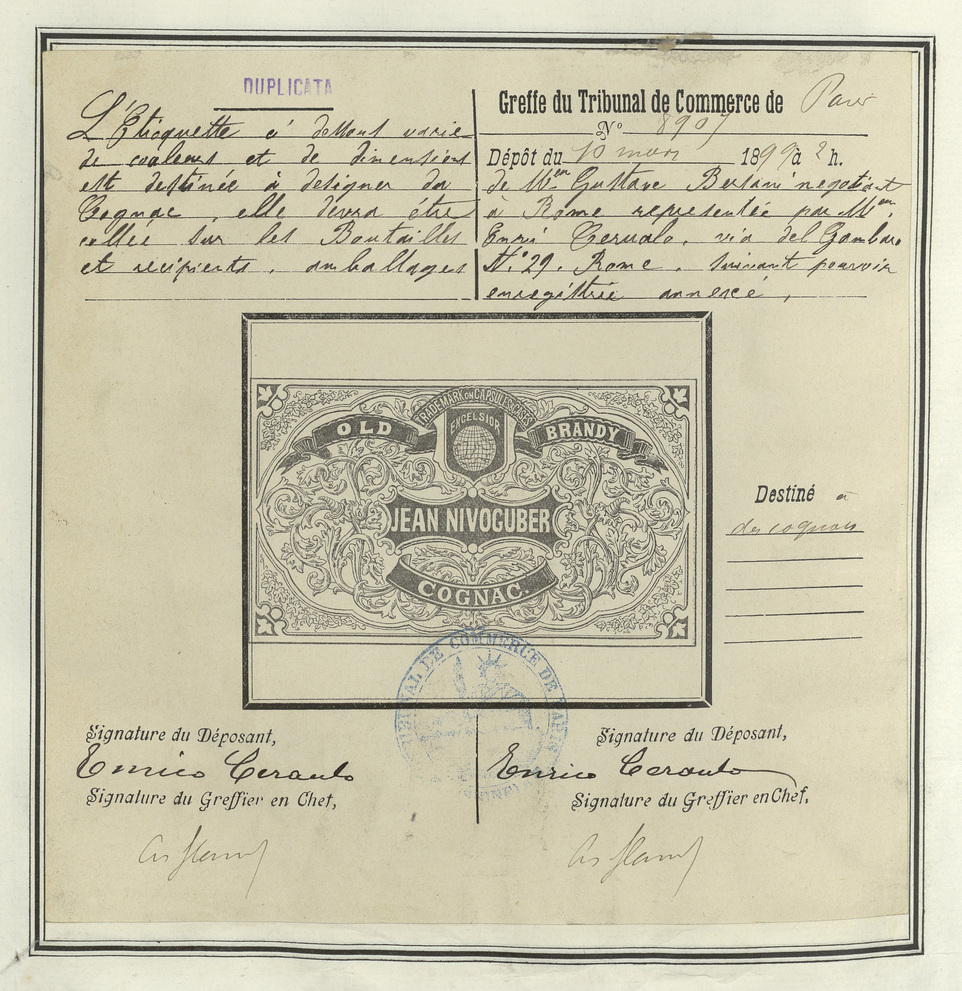 DUPLICATA
L'Eticquette ci dessous varie
de couleurs et de dimensions
est destinée à designer du
Cognac, elle devra être
collée sur les Boutailles
et recipients, amballages
Greffe du Tribunal de Commerce de Paris
No 8907
Dépôt du 10 mars 1899 à 2 h.
de Mr Gustave negotiant
à Rome representée par Mr
Enrico Cerualo, via del Gambaro
N.° 29. Rome. Suivant pouvoir
enregistrée annexé,
TRADE MARK ON CAPSULES & CASES
EXCELSIOR
OLD BRANDY
JEAN NIVOGUBER
COGNAC.
Destiné à
des cognacs
TRIBUNAL DE COMMERCE DE PARIS
Signature du Déposant,
Enrico Ceraulo
Signature du Greffier en Chef,
Signature du Déposant,
Enrico Ceraulo
Signature du Greffier en Chef,